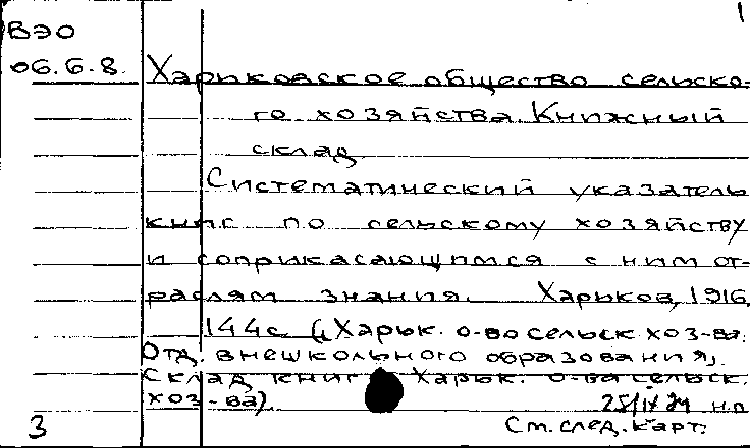 1
ВЭО
06.6.8.
Харьковское общество сельско-
го хозяйства. Книжный
склад.
Систематический указатель
книг по сельскому хозяйству
и соприкасающимся с ним от-
раслям знания. Харьков, 1916.
144 с. (Харьк. о-во сельск. хоз-ва.
Отд. внешкольного образования,
Склад книг Харьк. о-ва сельск.
хоз-ва)
н.п.
3
См. след. карт.